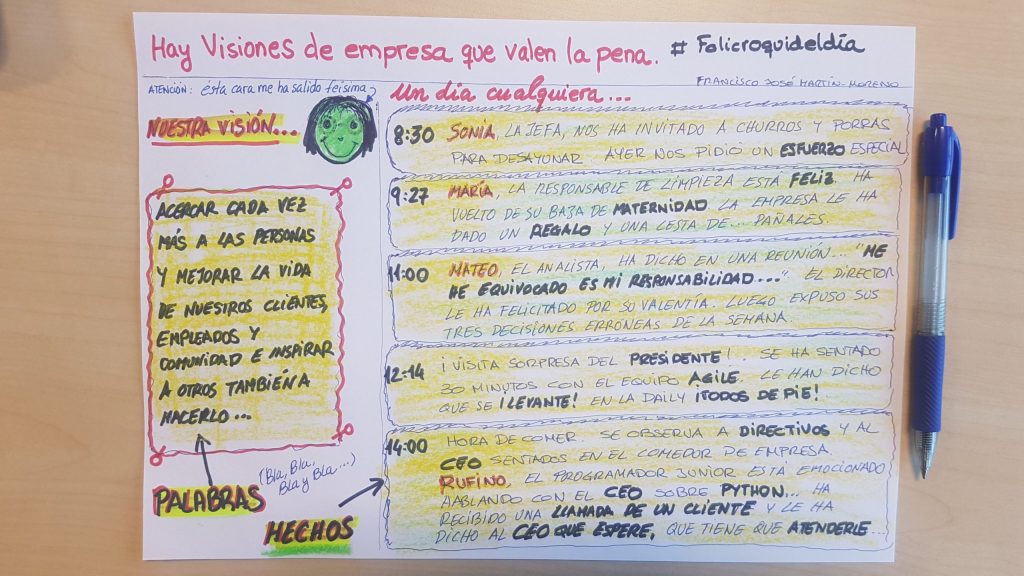 Hay Visiones de empresa que valen la pena. # Folicroquideldía
FRANCISCO JOSÉ MARTÍN MORENO
ATENCIÓN: ésta cara me ha salido feísima
NUESTRA VISIÓN...
ACERCAR CADA VEZ
MÁS A LAS PERSONAS
Y MEJORAR LA VIDA
DE NUESTROS CLIENTES,
EMPLEADOS Y
COMUNIDAD E INSPIRAR
A OTROS TAMBIÉN A
HACERLO...
PALABRAS
(Bla, Bla,
Bla y Bla...)
HECHOS
Un día cualquiera...
8:30 SONIA, LA JEFA, NOS HA INVITADO A CHURROS Y PORRAS
PARA DESAYUNAR. AYER NOS PIDIÓ UN ESFUERZO ESPECIAL
9:27 MARÍA, LA RESPONSABLE DE LIMPIEZA ESTÁ FELIZ. HA
VUELTO DE SU BAJA DE MATERNIDAD LA EMPRESA LE HA
DADO UN REGALO Y UNA CESTA DE... PAÑALES.
11:00 MATEO, EL ANALISTA, HA DICHO EN UNA REUNIÓN... "ME
HE EQUIVOCADO ES MI RESPONSABILIDAD...." EL DIRECTOR
LE HA FELICITADO POR SU VALENTÍA. LUEGO EXPUSO SUS
TRES DECISIONES ERRÓNEAS DE LA SEMANA.
12:14 ¡VISITA SORPRESA DEL PRESIDENTE!. SE HA SENTADO
30 MINUTOS CON EL EQUIPO AGILE. LE HAN DICHO
QUE SE ¡LEVANTE! EN LA DAILY ¡TODOS DE PIE!
14:00 HORA DE COMER. SE OBSERVA A DIRECTIVOS Y AL
CEO SENTADOS EN EL COMEDOR DE EMPRESA.
RUFINO, EL PROGRAMADOR JUNIOR ESTÁ EMOCIONADO
HABLANDO CON EL CEO SOBRE PYTHON... HA
RECIBIDO UNA LLAMADA DE UN CLIENTE Y LE HA
DICHO AL CEO QUE ESPERE, QUE TIENE QUE ATENDERLE...